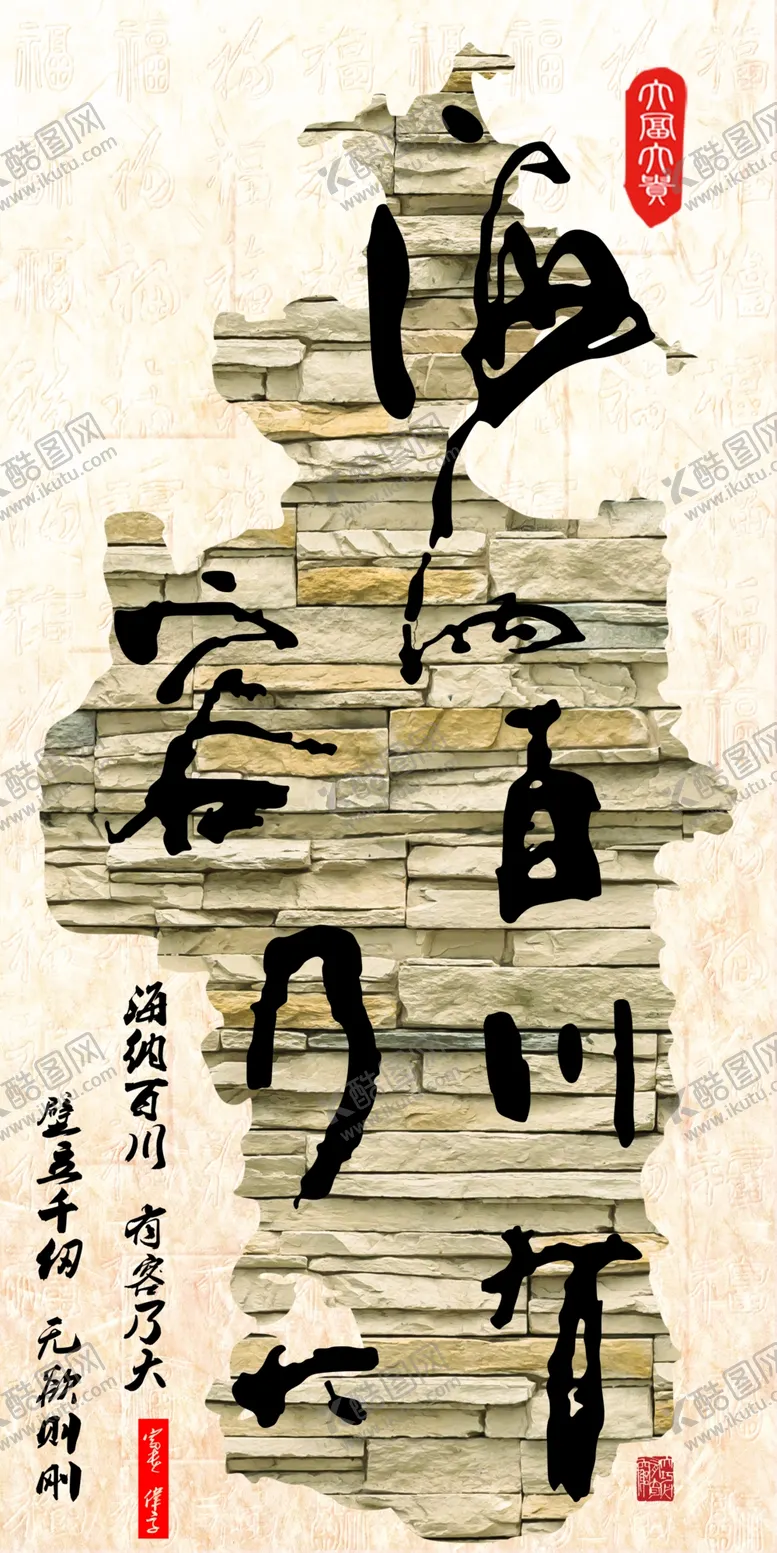 大富大貴
海纳百川有
容乃大
海纳百川 有容乃大
壁立千仞 无欲则刚
酷图网
www.ikutu.com
福